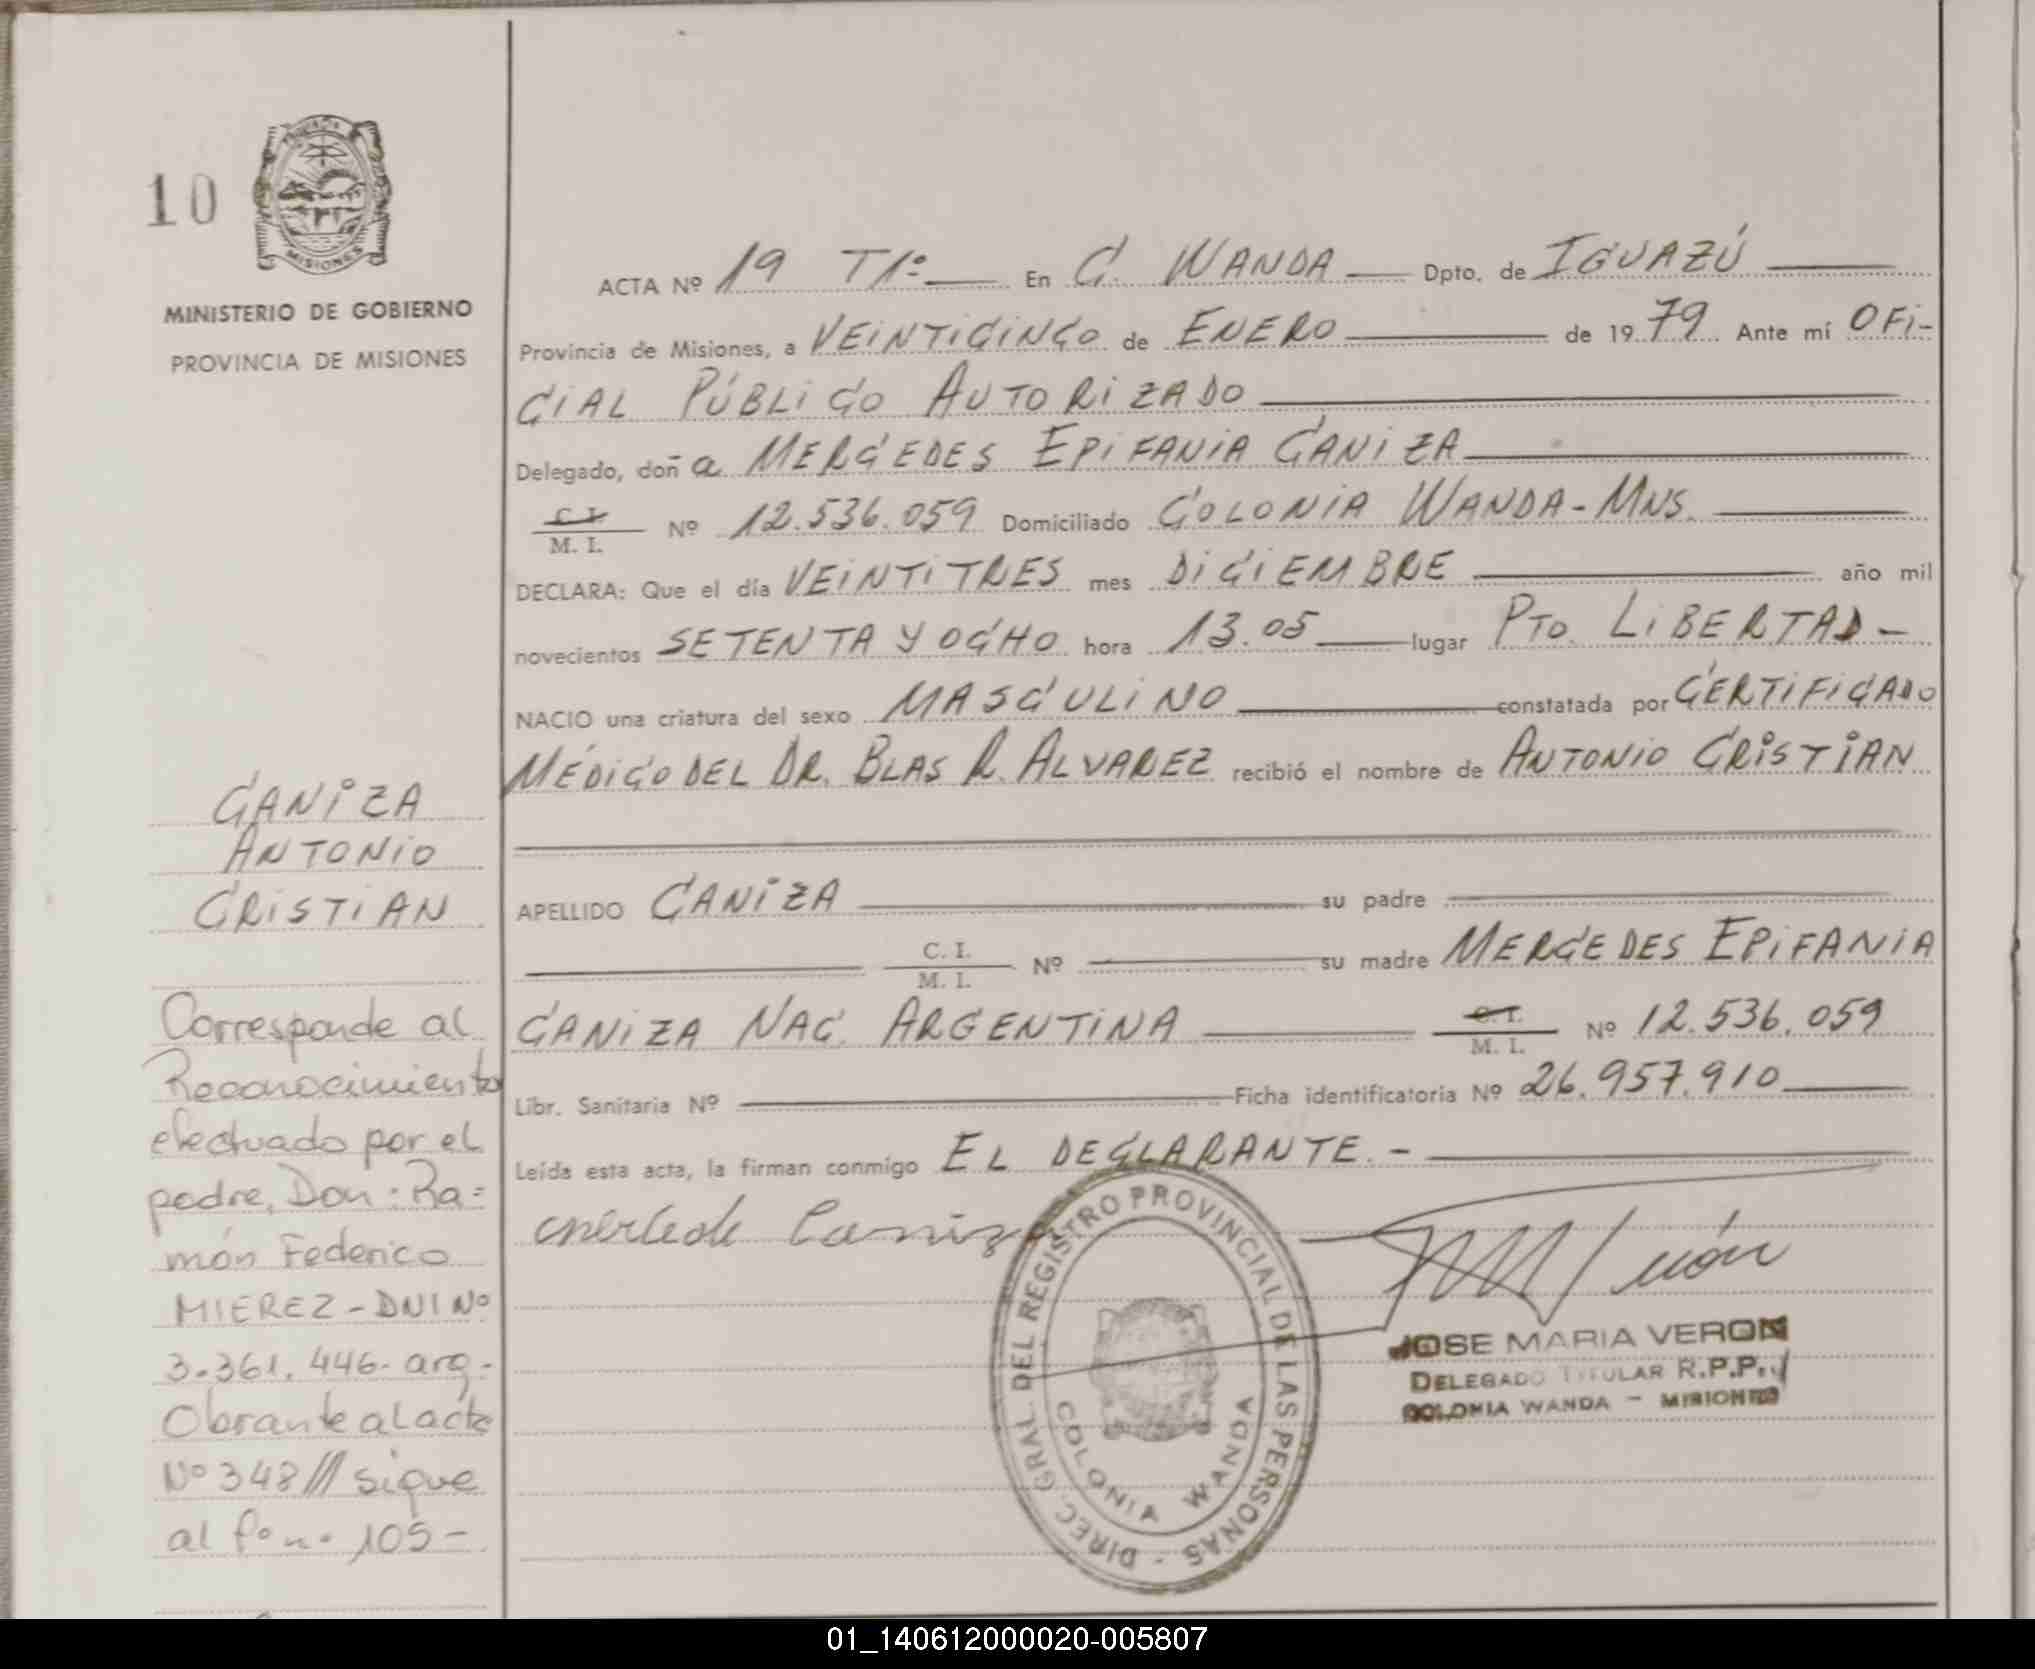 10
MISIONES
MINISTERIO DE GOBIERNO
PROVINCIA DE MISIONES
ACTA Nº 19 T1º En C. WANDA Dpto. de IGUAZÚ
Provincia de Misiones, a VEINTICINCO de ENERO de 1979 Ante mí OFI-
CIAL PÚBLICO AUTORIZADO
Delegado, doña MERCEDES EPIFANIA CANIZA
C. I.
M. I. Nº 12.536.059 Domiciliado COLONIA WANDA - MNS.
DECLARA: Que el día VEINTITRES mes DICIEMBRE año mil
novecientos SETENTA Y OCHO hora 13.05 lugar PTO. LIBERTAD -
NACIO una criatura del sexo MASCULINO constatada por CERTIFICADO
MÉDICO DEL DR. BLAS R. ALVAREZ recibió el nombre de ANTONIO CRISTIAN
APELLIDO CANIZA su padre
C. I.
M. I. Nº su madre MERCEDES EPIFANIA
CANIZA NAC. ARGENTINA C. I.
M. I. Nº 12.536.059
Libr. Sanitaria Nº Ficha identificatoria Nº 26.957.910
Leída esta acta, la firman conmigo EL DECLARANTE. -
CANIZA
ANTONIO
CRISTIAN
Corresponde al
Reconocimiento
efectuado por el
padre, Don: Ra=
món Federico
MIEREZ - DNI Nº
3.361.446- arg.
Obrante al acta
Nº 348 /// sigue
al fº nº 105 -
DIREC. GRAL. DEL REGISTRO PROVINCIAL DE LAS PERSONAS -
COLONIA WANDA
JOSE MARIA VERON
DELEGADO TITULAR R.P.P.
COLONIA WANDA - MISIONES
01_140612000020-005807